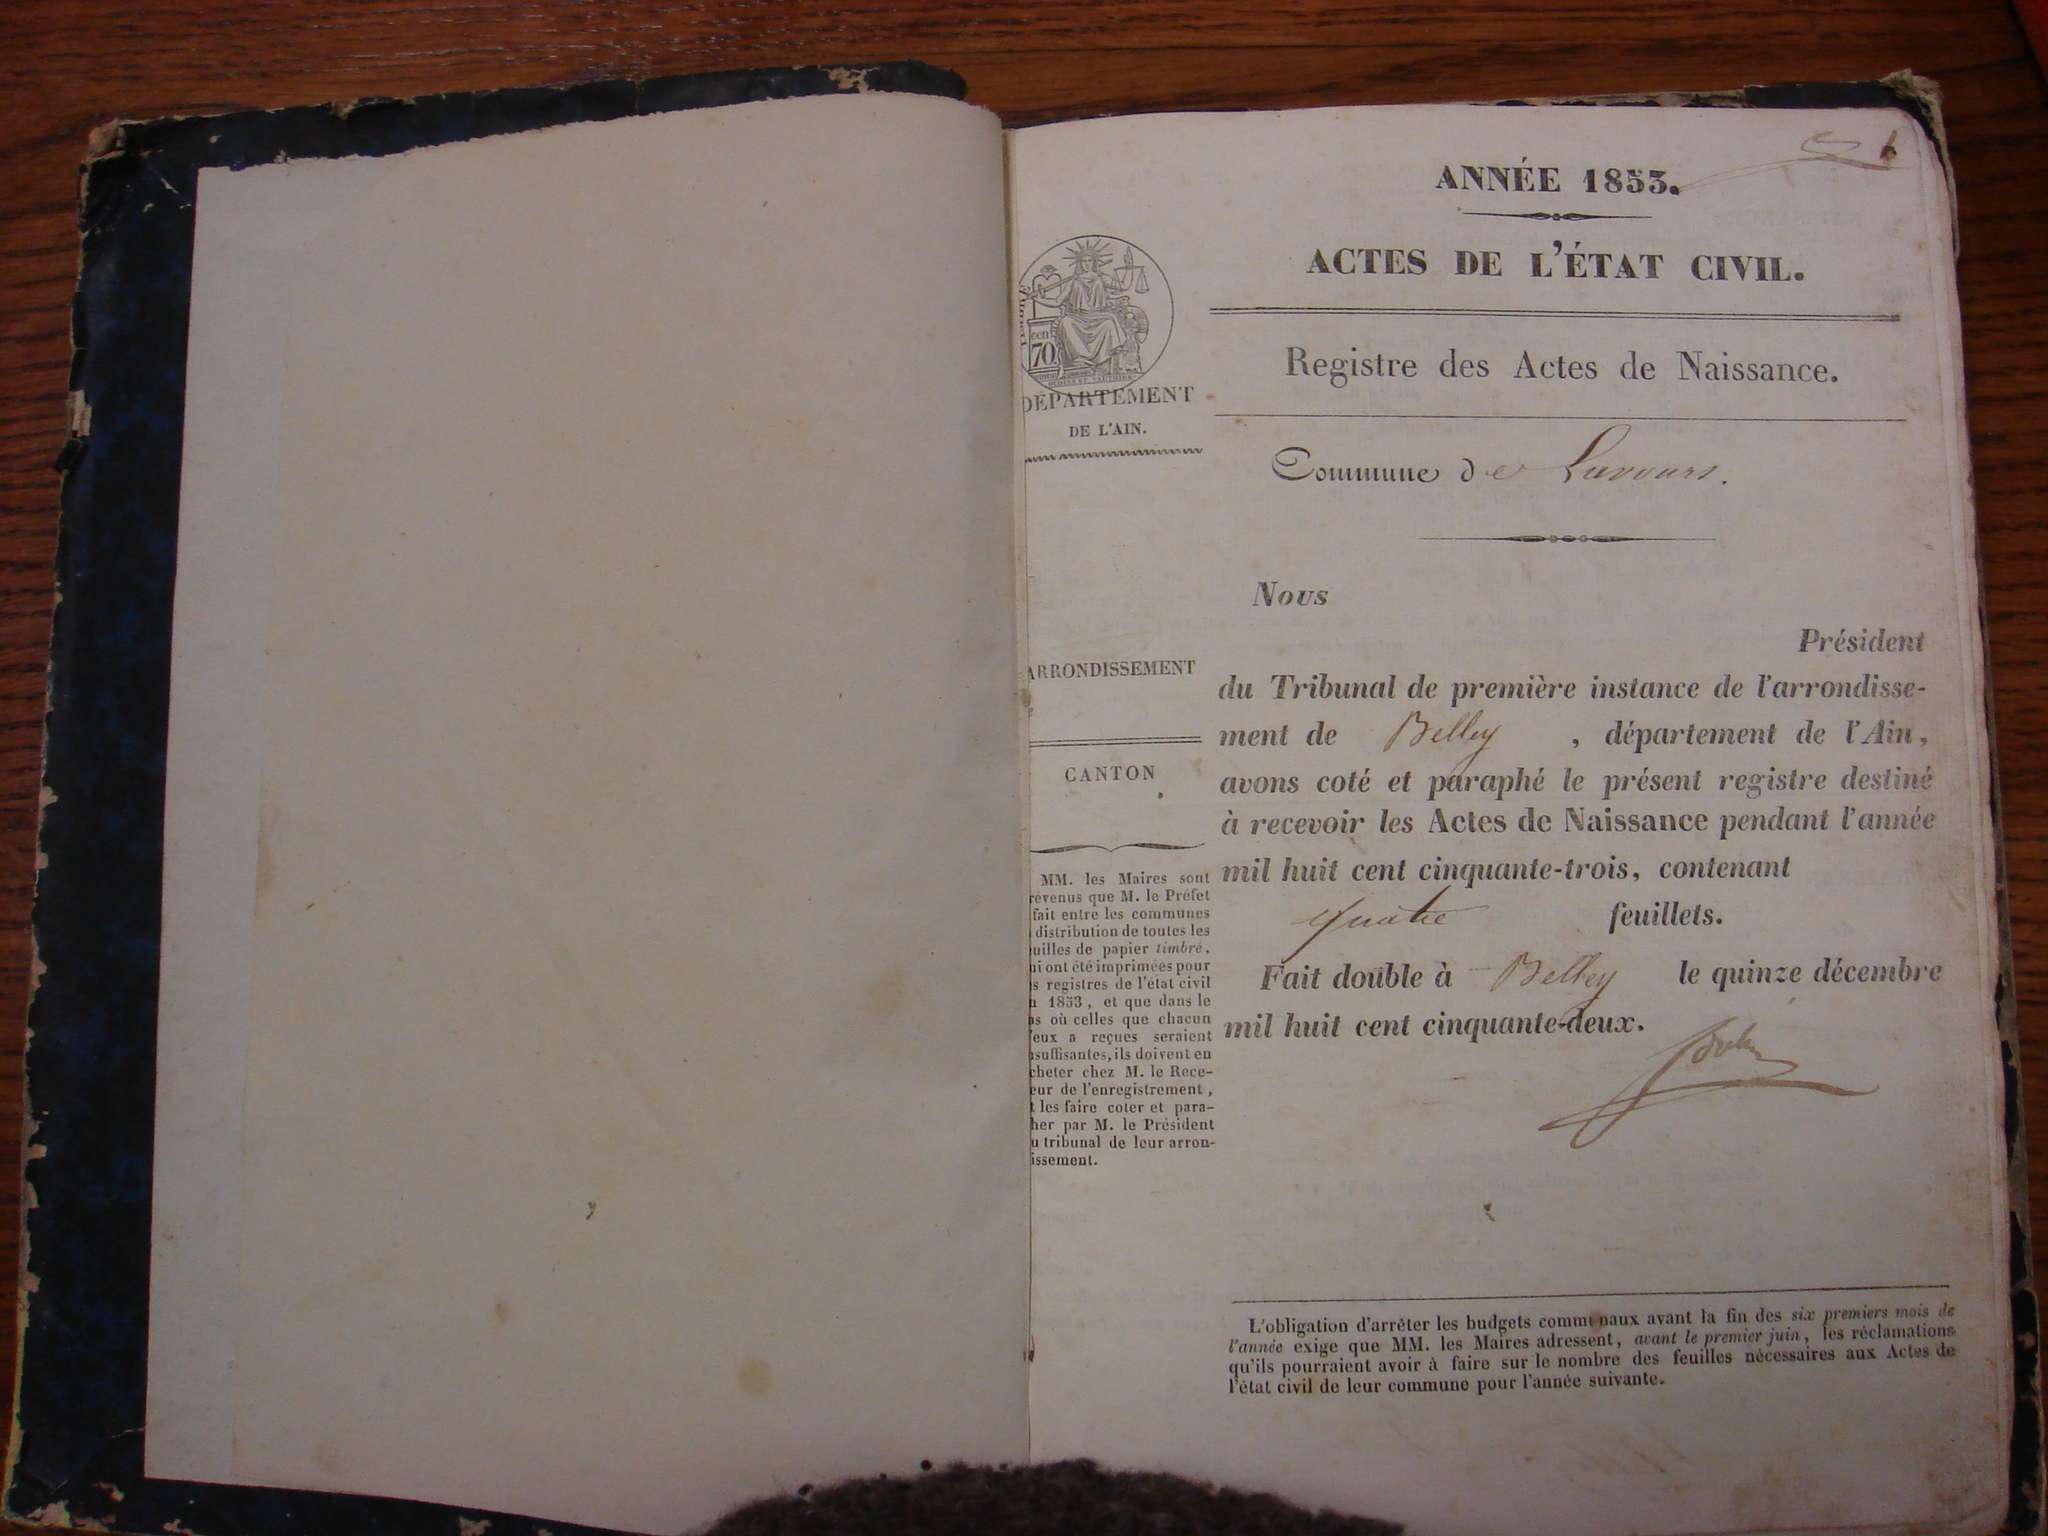 1
ANNÉE 1853.
ACTES DE L'ÉTAT CIVIL.
Registre des Actes de Naissance.
cen
70
DÉPARTEMENT
DE L'AIN.
Commune de Lavours.
Nous
Président
du Tribunal de première instance de l'arrondisse-
ment de Belley , département de l'Ain,
avons coté et paraphé le présent registre destiné
à recevoir les Actes de Naissance pendant l'année
mil huit cent cinquante-trois, contenant
quatre feuillets.
Fait double à Belley le quinze décembre
mil huit cent cinquante-deux.
ARRONDISSEMENT
CANTON
MM. les Maires sont
révenus que M. le Préfet
fait entre les communes
distribution de toutes les
uilles de papier timbré,
ui ont été imprimées pour
s registres de l'état civil
n 1853, et que dans le
as où celles que chacun
'eux a reçues seraient
nsuffisantes, ils doivent en
cheter chez M. le Rece-
eur de l'enregistrement,
t les faire coter et para-
her par M. le Président
u tribunal de leur arron-
issement.
L'obligation d'arrêter les budgets communaux avant la fin des six premiers mois de
l'année exige que MM. les Maires adressent, avant le premier juin, les réclamations
qu'ils pourraient avoir à faire sur le nombre des feuilles nécessaires aux Actes de
l'état civil de leur commune pour l'année suivante.